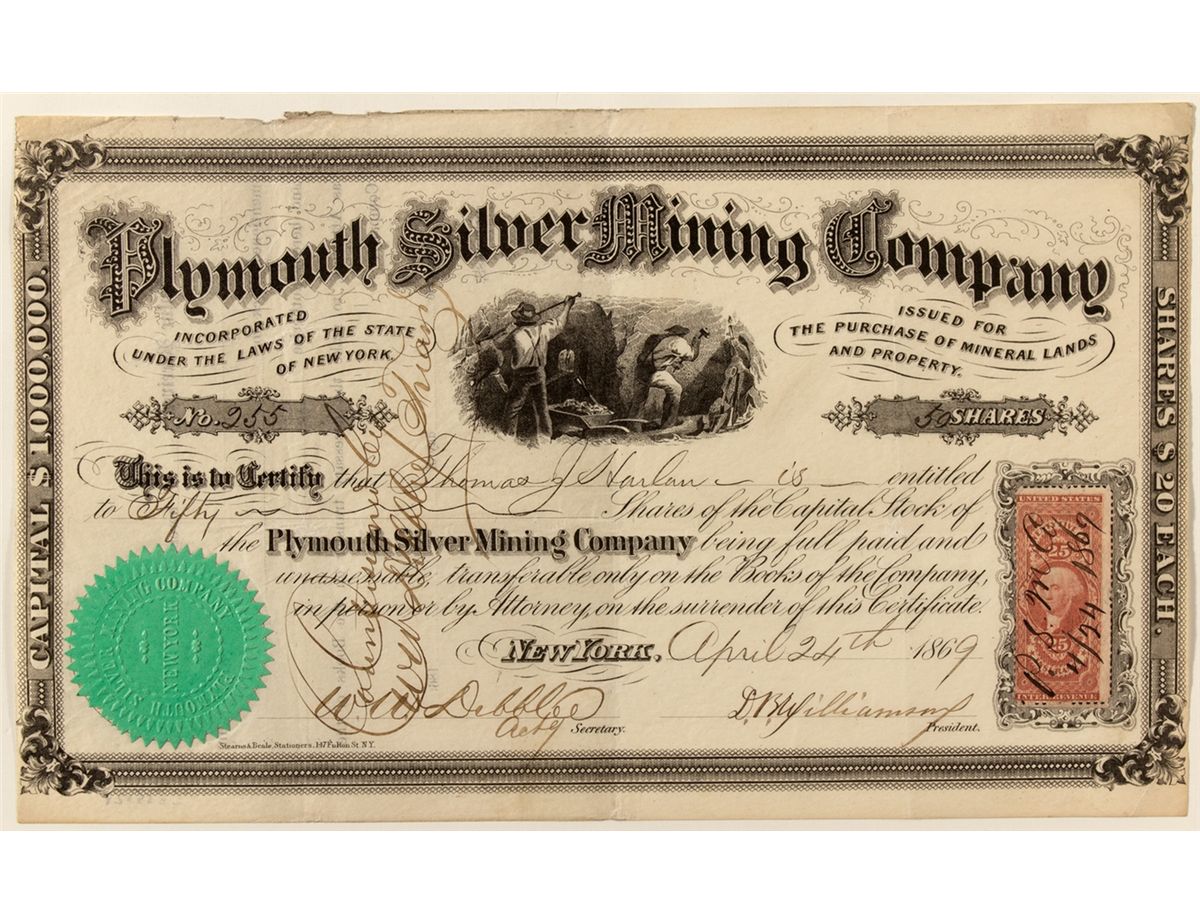 Plymouth Silver Mining Company
INCORPORATED
UNDER THE LAWS OF THE STATE
OF NEW YORK.
ISSUED FOR
THE PURCHASE OF MINERAL LANDS
AND PROPERTY.
No. 255
50 SHARES
CAPITAL $1000,000.
SHARES $20 EACH.
This is to Certify that Thomas J Harlan is entitled
to Fifty Shares of the Capital Stock of
the Plymouth Silver Mining Company being full paid and
unassessable, transferable only on the Books of the Company,
in person or by Attorney, on the surrender of this Certificate.
NEW YORK, April 24th 1869
W W Dibblee
Actg Secretary.
D. B. Williamson
President.
Stearns & Beale, Stationers. 147 Fulton St. N.Y.
PLYMOUTH SILVER MINING COMPANY
NEW YORK
UNITED STATES
25 25
INTER. REVENUE
P. S. M. Co
4/24 1869